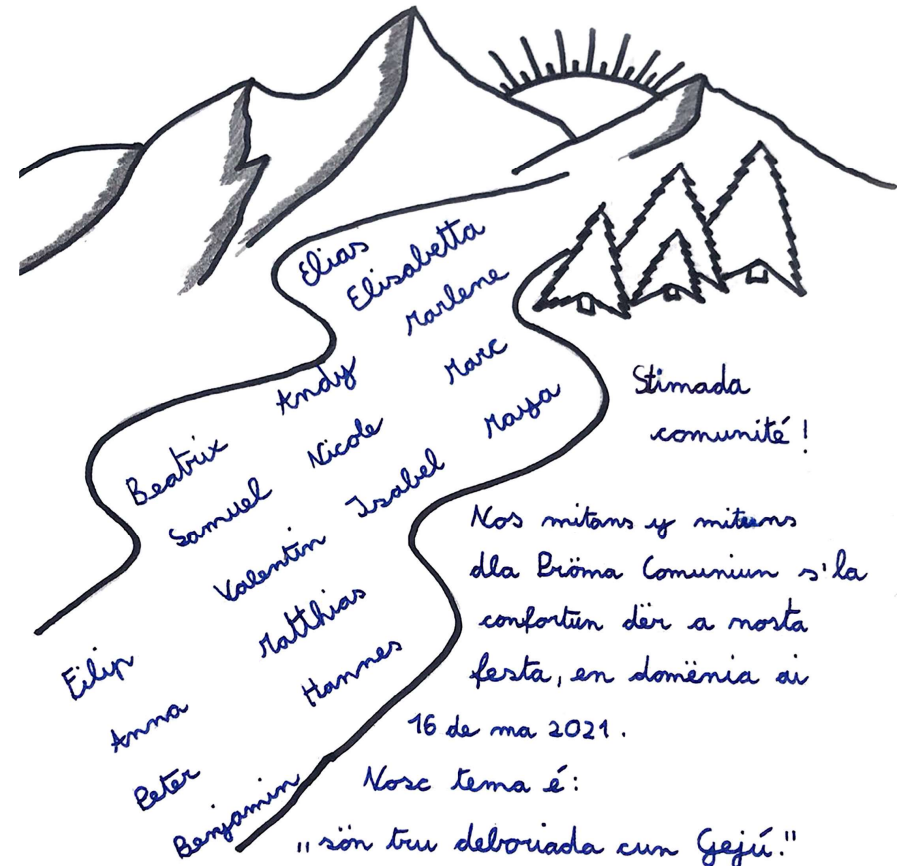 Elias
Elisabetta
Marlene
Andy
Marc
Beatrix
Nicole
Maya
Samuel
Isabel
Valentin
Matthias
Filip
Hannes
Anna
Peter
Benjamin
Stimada
comunité!
Nos mitans y mituns
dla Pröma Comuniun s'la
confortun dër a nosta
festa, en domënia ai
16 de ma 2021.
Nosc tema é:
„sön tru deboriada cun Gejú."